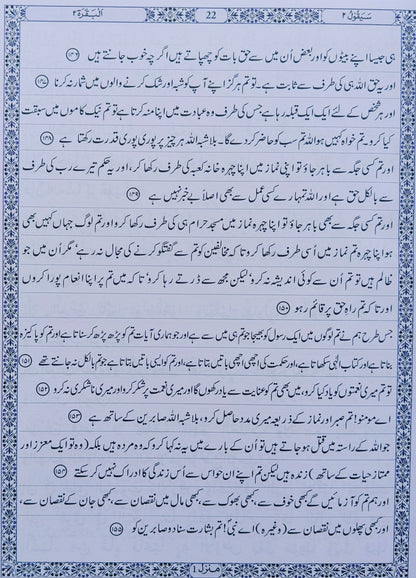 سَیَقُوْل ۲
22
اَلْبَقَرَة ۲
ہی جیسا اپنے بیٹوں کو اور بعض اُن میں سے حق بات کو چھپاتے ہیں اگرچہ خوب جانتے ہیں ﴿۱۴۶﴾
اور یہ حق اللہ ہی کی طرف سے ثابت ہے۔ تو تم ہرگز اپنے آپ کو شبہ اور شک کرنے والوں میں شمار نہ کرنا ﴿۱۴۷﴾
اور ہر شخص کے لئے ایک ایک قبلہ رہا ہے جس کی طرف وہ عبادت میں اپنا منہ کرتا ہے تو تم نیک کاموں میں سبقت
کیا کرو۔ تم خواہ کہیں ہو اللہ تم سب کو حاضر کر دے گا۔ بلاشبہ اللہ ہر چیز پر پوری پوری قدرت رکھتا ہے ﴿۱۴۸﴾
اور تم کسی جگہ سے باہر جاؤ تو اپنی نماز میں اپنا چہرہ خانہ کعبہ کی طرف رکھا کر، اور یہ حکم تیرے رب کی طرف
سے بالکل حق ہے اور اللہ تمہارے کسی عمل سے بھی اصلاً بے خبر نہیں ہے ﴿۱۴۹﴾
اور تم کسی جگہ سے بھی باہر جاؤ تو اپنا چہرہ نماز میں مسجد حرام ہی کی طرف رکھا کرو اور تم لوگ جہاں کہیں بھی
ہو اپنا چہرہ تم نماز میں اُسی طرف رکھا کرو تا کہ مخالفین کو تم سے گفتگو کرنے کی مجال نہ رہے‘ مگر اُن میں جو
ظالم ہیں تو تم اُن سے کوئی اندیشہ نہ کرو‘ لیکن مجھ سے ڈرتے رہا کرو‘ تا کہ میں تم پر اپنا انعام پورا کروں
اور تا کہ تم راہِ حق پر قائم رہو ﴿۱۵۰﴾
جس طرح ہم نے تم لوگوں میں ایک رسول کو بھیجا جو تم ہی میں سے ہے اور جو ہماری آیات تم کو پڑھ پڑھ کر سناتا ہے اور تم کو پاکیزہ
بناتا ہے اور کتابِ الٰہی سکھاتا ہے، اور حکمت کی اچھی اچھی باتیں بتاتا ہے، اور تم کو ایسی باتیں بتاتا ہے جو تم بالکل نہ جانتے تھے ﴿۱۵۱﴾
تو تم میری نعمتوں کو یاد کیا کرو، میں بھی تم کو عنایت سے یاد رکھوں گا اور میری نعمت پر شکر کرو اور میری ناشکری نہ کرو ﴿۱۵۲﴾
اے مومنو! تم صبر اور نماز کے ذریعہ میری مدد حاصل کرو، بلاشبہ اللہ صابرین کے ساتھ ہے ﴿۱۵۳﴾
جو اللہ کے راستہ میں قتل ہو جاتے ہیں تو اُن کے بارے میں یہ نہ کہا کرو کہ وہ مردہ ہیں بلکہ (وہ تو ایک معزز اور
ممتاز حیات کے ساتھ) زندہ ہیں لیکن تم اپنے ان حواس سے اُس زندگی کا ادراک نہیں کر سکتے ﴿۱۵۴﴾
اور ہم تم کو آزمائیں گے کبھی خوف سے، کبھی بھوک سے، کبھی مال میں نقصان سے، کبھی جان کے نقصان سے،
اور کبھی پھلوں میں نقصان سے (وغیرہ) اے نبیؐ! تم بشارت سنا دو صابرین کو ﴿۱۵۵﴾
منزل ۱